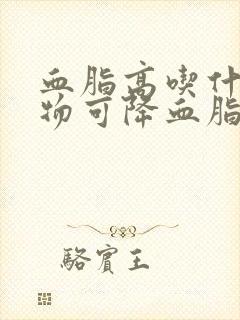 血脂高喫什
物可降血脂
駱賓王